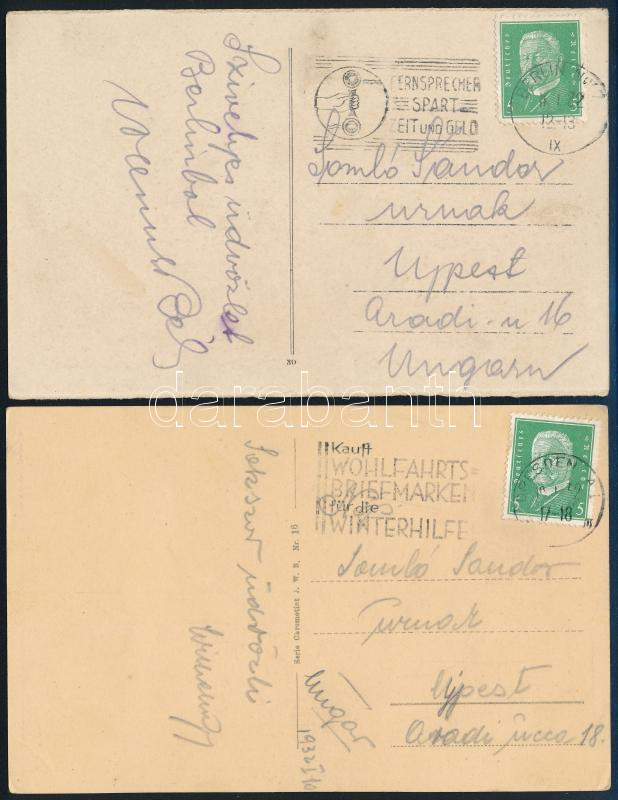 Szivelyes üdvözlet
Berlinből
FERNSPRECHER
SPART
ZEIT UND GELD
DEUTSCHES REICH
5
BERLIN
12-13
IX
Somló Sándor
urnak
Ujpest
Aradi-u 16
Ungarn
darabanth
Sokszor üdvözli
Serie Carometist J. W. B. Nr. 16
Kauft
WOHLFAHRTS=
BRIEFMARKEN
für die
WINTERHILFE
5
DRESDEN
17-18
Somló Sandor
Furnak
Ujpest
Aradi ucca 18.
Ungar
1932